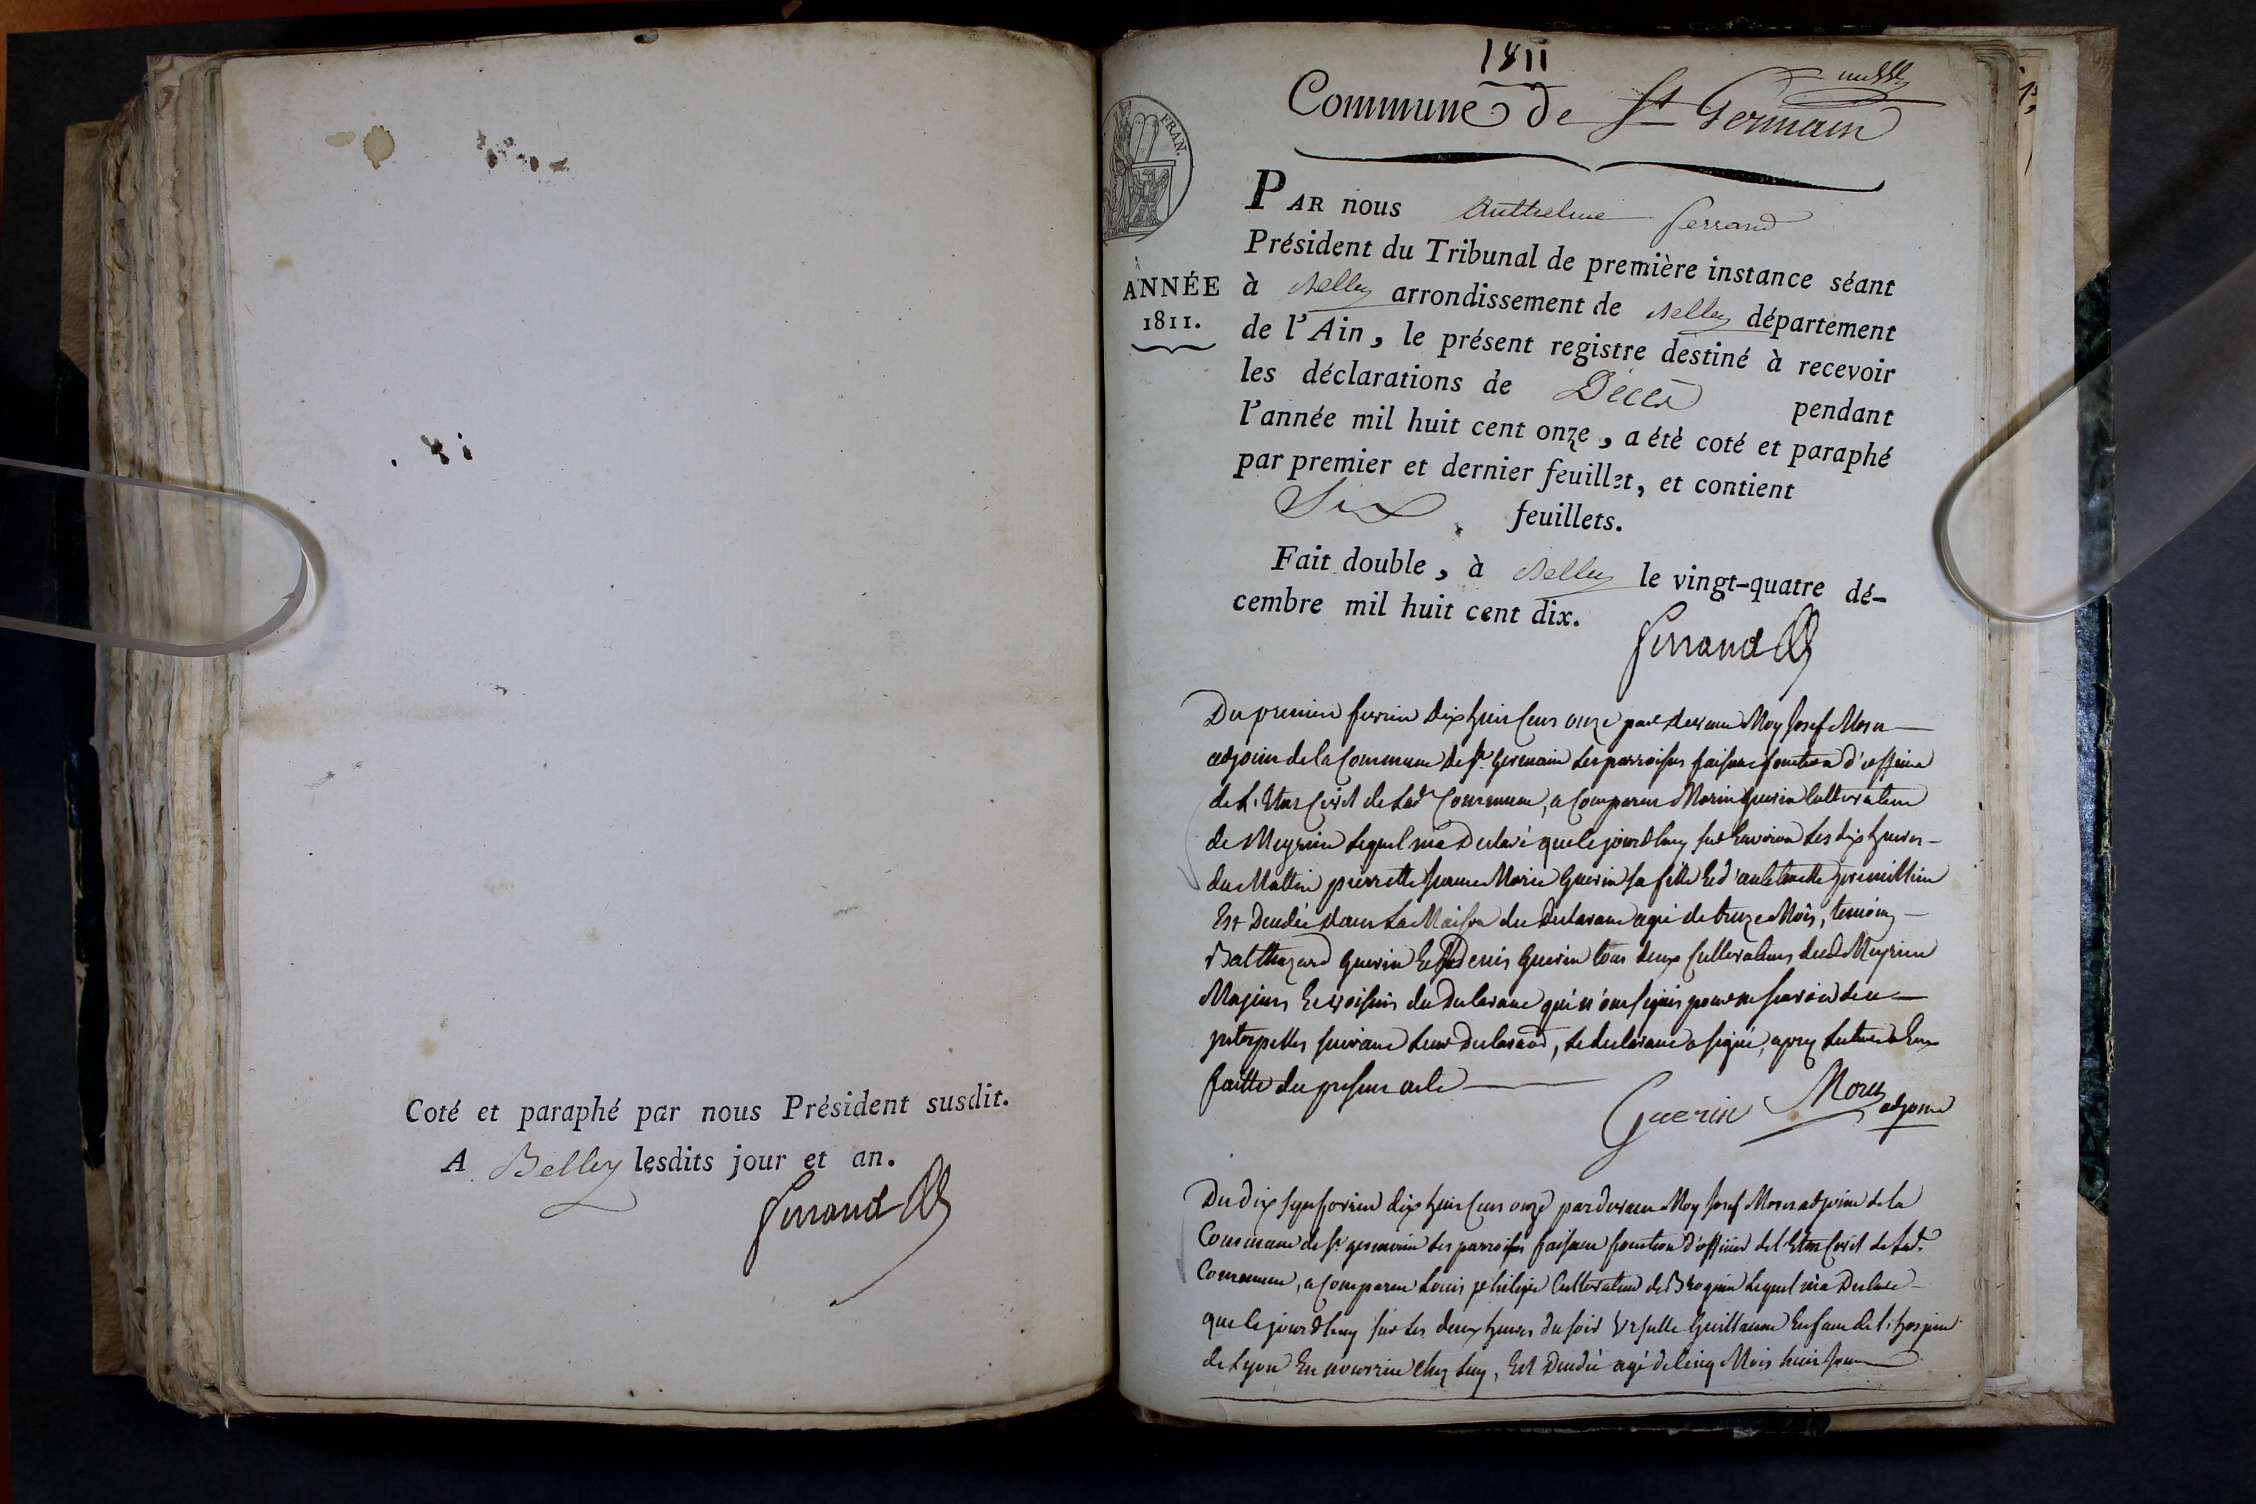 Coté et paraphé par nous Président susdit.
A Belley lesdits jour et an.
Ferrand
1811
Commune de St Germain
FRAN.
ANNÉE
1811.
PAR nous Anthelme Ferrand
Président du Tribunal de première instance séant
à Belley arrondissement de Belley département
de l'Ain, le présent registre destiné à recevoir
les déclarations de Décès pendant
l'année mil huit cent onze, a été coté et paraphé
par premier et dernier feuillet, et contient
Six feuillets.
Fait double, à Belley le vingt-quatre dé-
cembre mil huit cent dix.
Ferrand
Du premier fevrier dix huit cent onze par devant Moy Josef Morel
adjoint de la Commune de St germain les parroisses faisant fonction d'officier
de L'Etat Civil de Lad Commune, a Comparu Marin guerin Cultivateur
de Meyrieu Lequel m'a Declaré que le jourdhuy sur Environ Les dix heures
du Mattin pierrette jeanne Marie Guerin sa fille Et d'
Est Decedée dans La Maison du Declarant agé de treze Mois, temoins
Balthazard guerin Et denis Guerin tous deux Cultivateurs dud Meyrieu
Majeurs Et voisins du Declarant qui n'ont signés pour ne savoir de ce
interpellés suivant Leur Declaration, Le declarant a signé, apres Lecture a Eux
faitte du present acte
Guerin Morel adjoint
Du dix sept fevrier dix huit Cent onze pardevant Moy Josef Morel adjoint de la
Commune de St germain les parroisses faisant fonction d'officier de l'Etat Civil de Lad.
Commune, a Comparu Louis philipe Cultivateur de Brognin Lequel m'a Declaré
que le jourdhuy sur Les deux heures du soir Ursulle Guillaume Enfant de l'hospice
de Lyon En nourrice chez Luy, Est Decedée agé de Cinq Mois huit jours